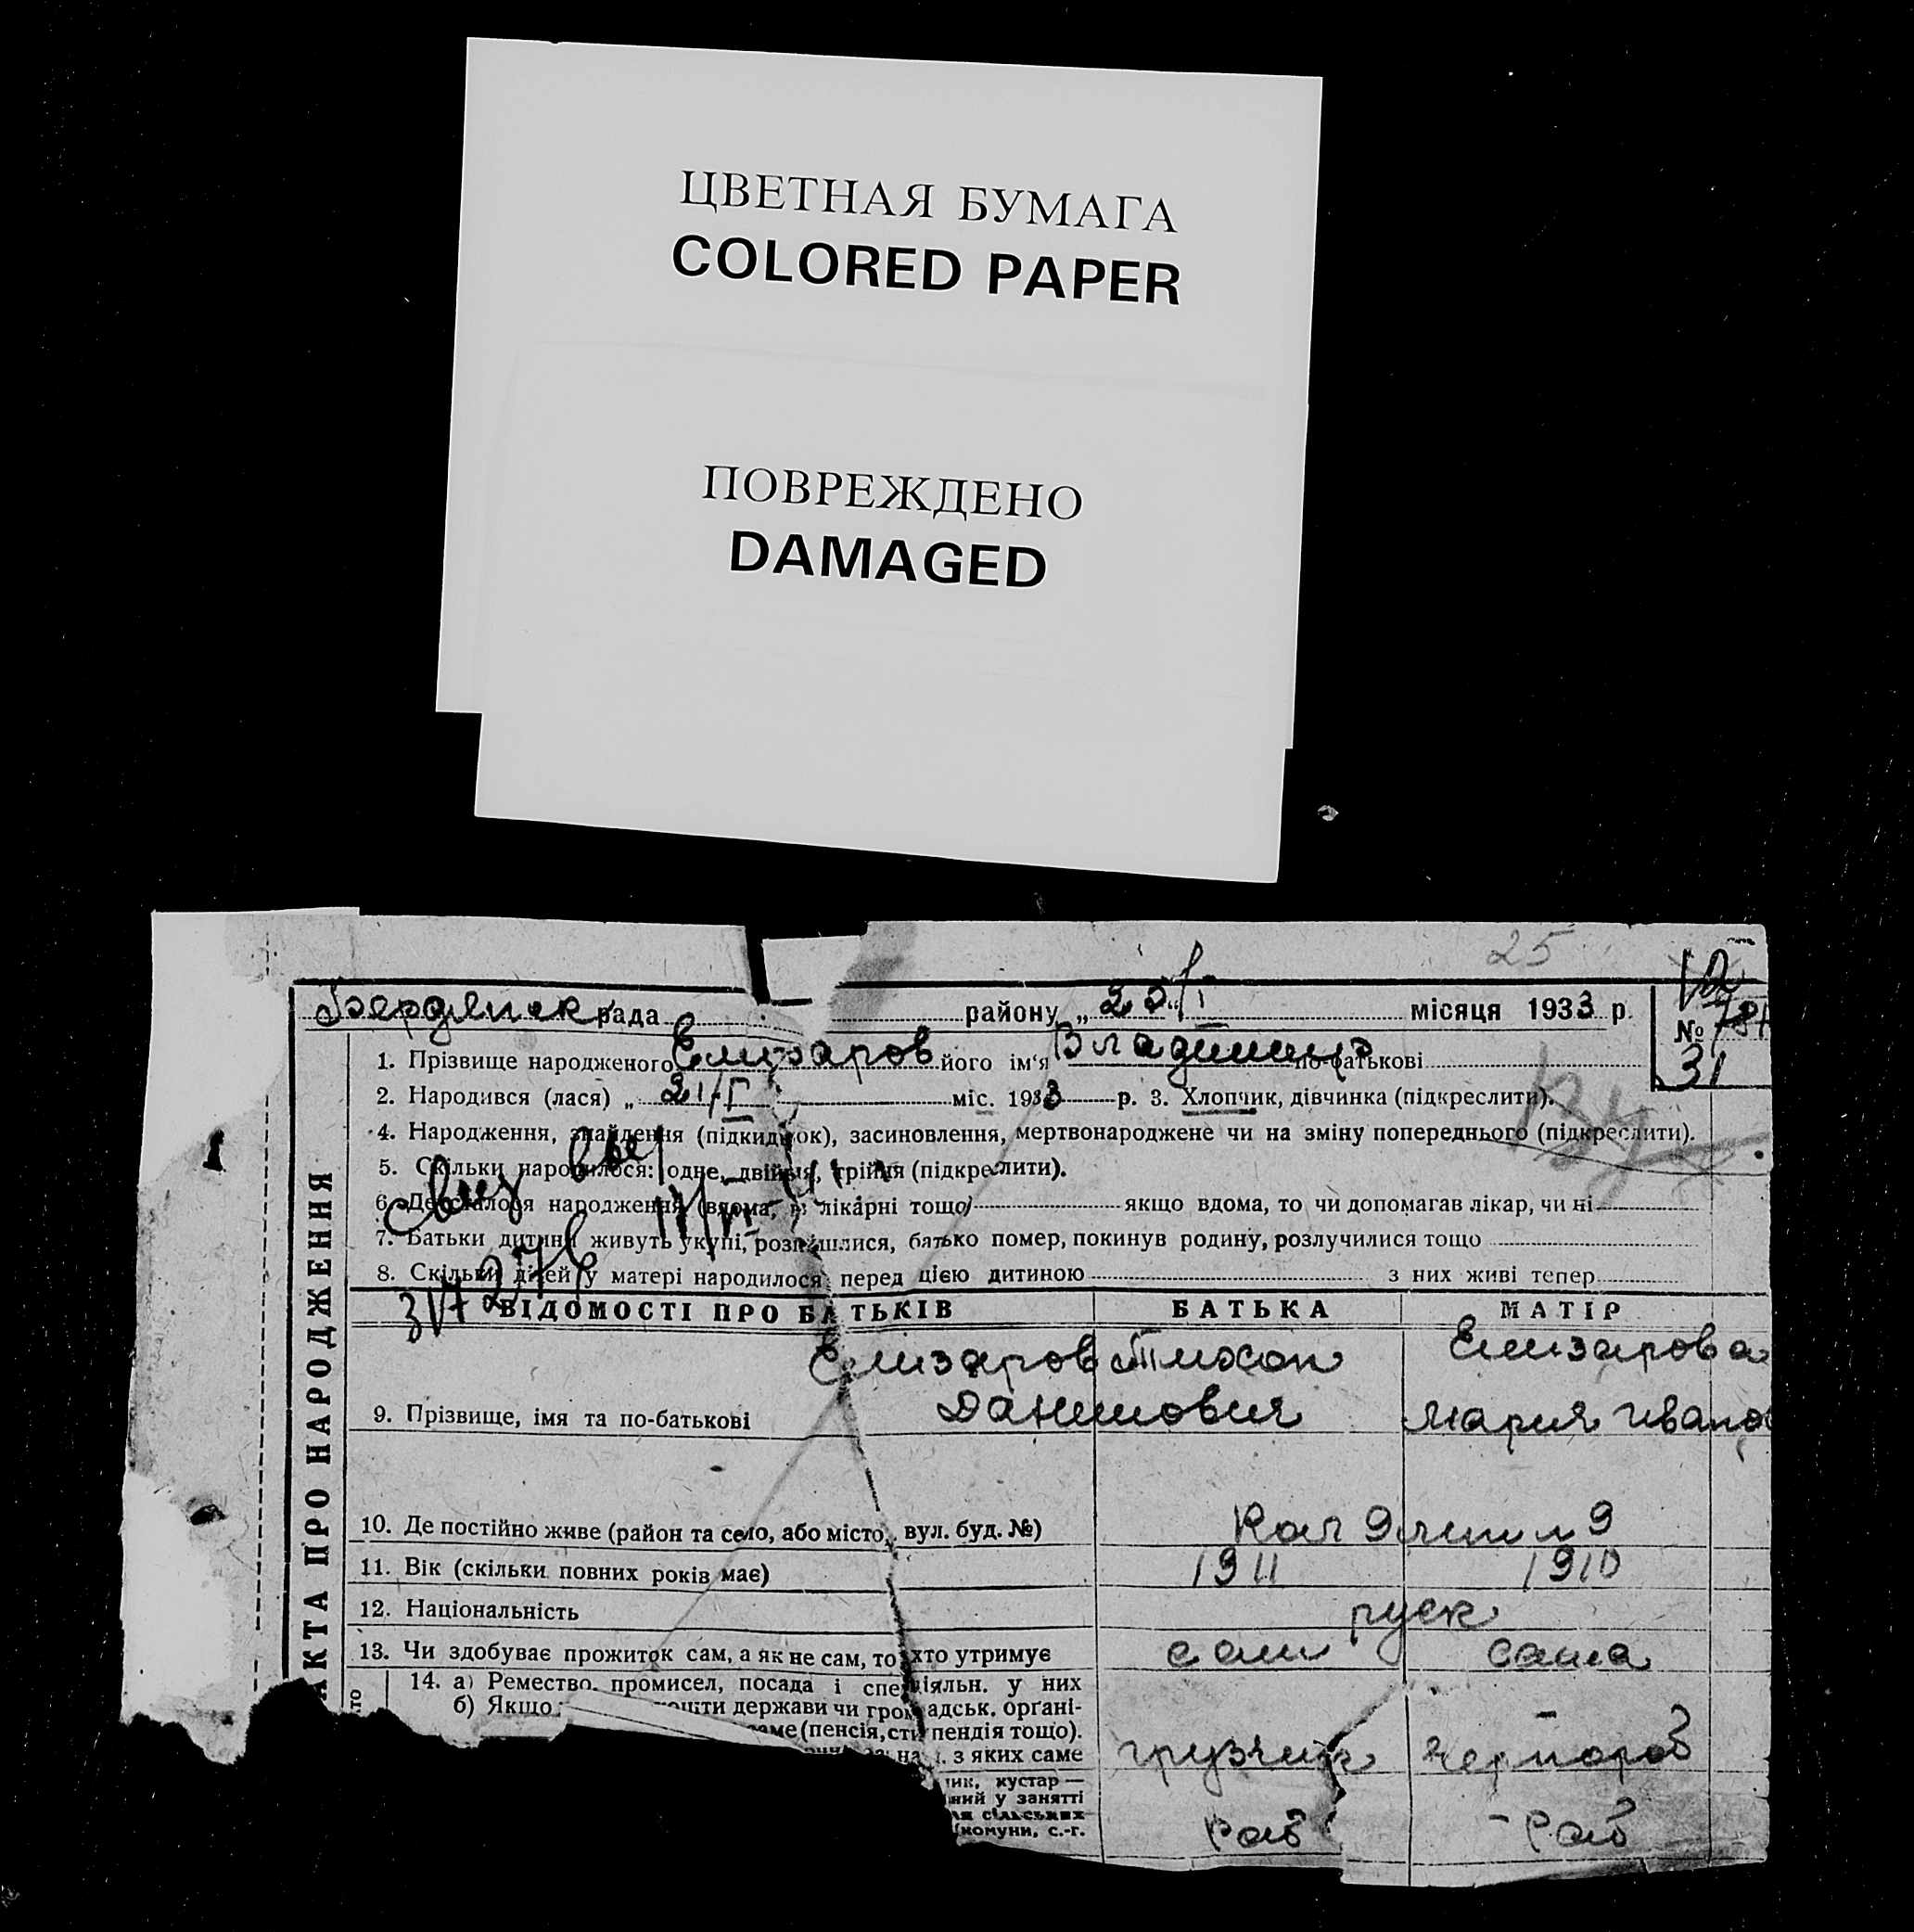 ЦВЕТНАЯ БУМАГА
COLORED PAPER
ПОВРЕЖДЕНО
DAMAGED
25
Бердянск рада району „ 20/I місяця 1933 р. № 781
31
1. Прізвище народженого Елизаров його ім‘я Владимир по-батькові
2. Народився (лася) „ 21/I міс. 1933 р. 3. Хлопчик, дівчинка (підкреслити).
4. Народження, знайдення (підкидьок), засиновлення, мертвонароджене чи на зміну попереднього (підкреслити).
5. Скільки народилося: одне, двійня, трійня (підкреслити).
6. Де сталося народження (вдома, в лікарні тощо) якщо вдома, то чи допомагав лікар, чи ні
7. Батьки дитини живуть укупі, розійшлися, батько помер, покинув родину, розлучилися тощо
8. Скільки дітей у матері народилося перед цією дитиною з них живі тепер
АКТА ПРО НАРОДЖЕННЯ
ВІДОМОСТІ ПРО БАТЬКІВ БАТЬКА МАТІР
Елизаров Тихон Елизарова
9. Прізвище, імя та по-батькові Данилович Мария Ивано
10. Де постійно живе (район та село, або місто, вул. буд. №) 9
11. Вік (скільки повних років має) 1911 1910
12. Національність руск
13. Чи здобуває прожиток сам, а як не сам, то хто утримує сам сама
14. а) Ремество, промисел, посада і спеціяльн. у них
б) Якщо кошти держави чи громадськ. орґані-
саме (пенсія, стипендія тощо).
з яких саме грузчик чернораб
ник, кустар —
ний у занятті
ля сільських
(комуни, с.-г. раб - раб